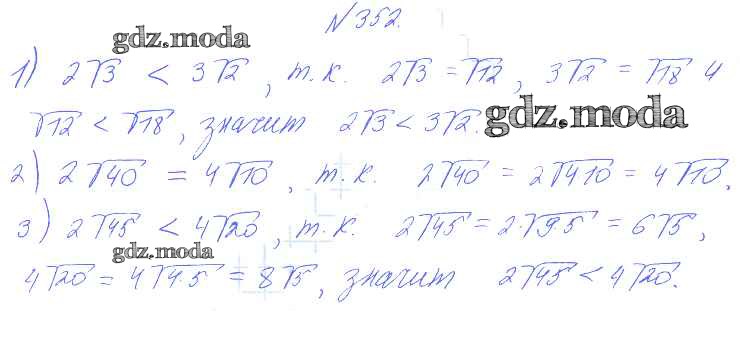 №352.
gdz.moda
1) 2√3 < 3√2, т.к. 2√3 = √12, 3√2 = √18 и
√12 < √18, значит 2√3 < 3√2.
gdz.moda
2) 2√40 = 4√10, т.к. 2√40 = 2√4·10 = 4√10,
3) 2√45 < 4√20, т.к. 2√45 = 2·√9·5 = 6√5,
gdz.moda
4√20 = 4√4·5 = 8√5, значит 2√45 < 4√20.